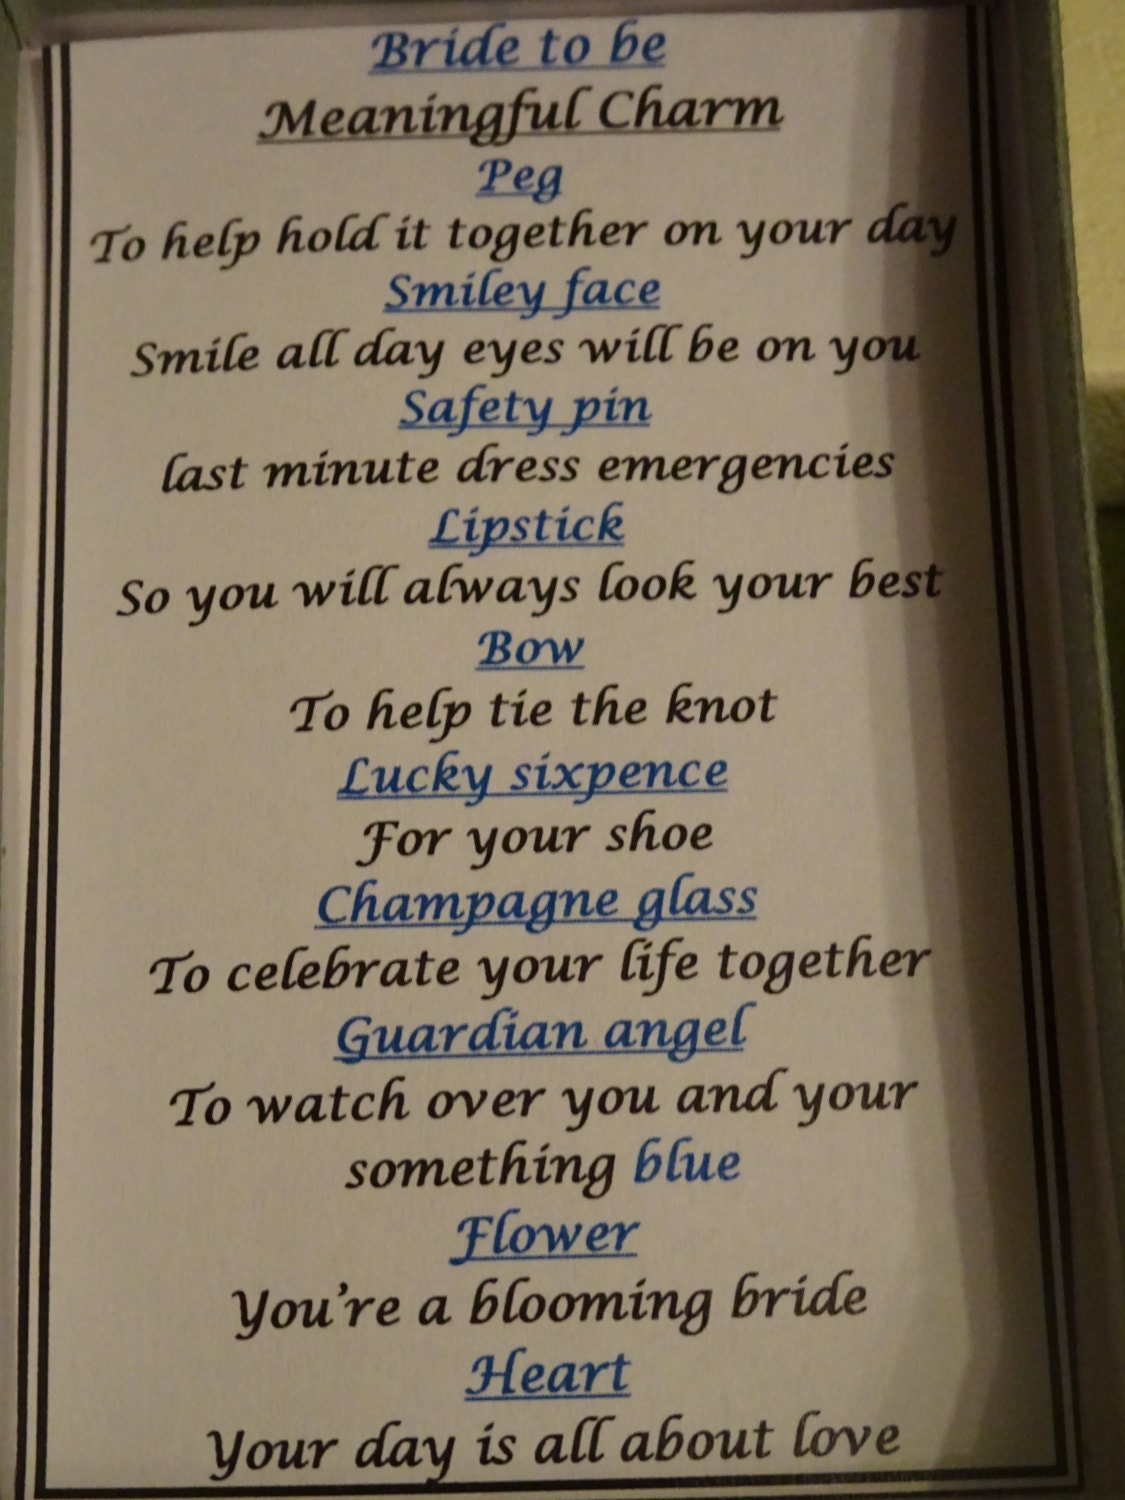 Bride to be
Meaningful Charm
Peg
To help hold it together on your day
Smiley face
Smile all day eyes will be on you
Safety pin
last minute dress emergencies
Lipstick
So you will always look your best
Bow
To help tie the knot
Lucky sixpence
For your shoe
Champagne glass
To celebrate your life together
Guardian angel
To watch over you and your
something blue
Flower
You're a blooming bride
Heart
Your day is all about love